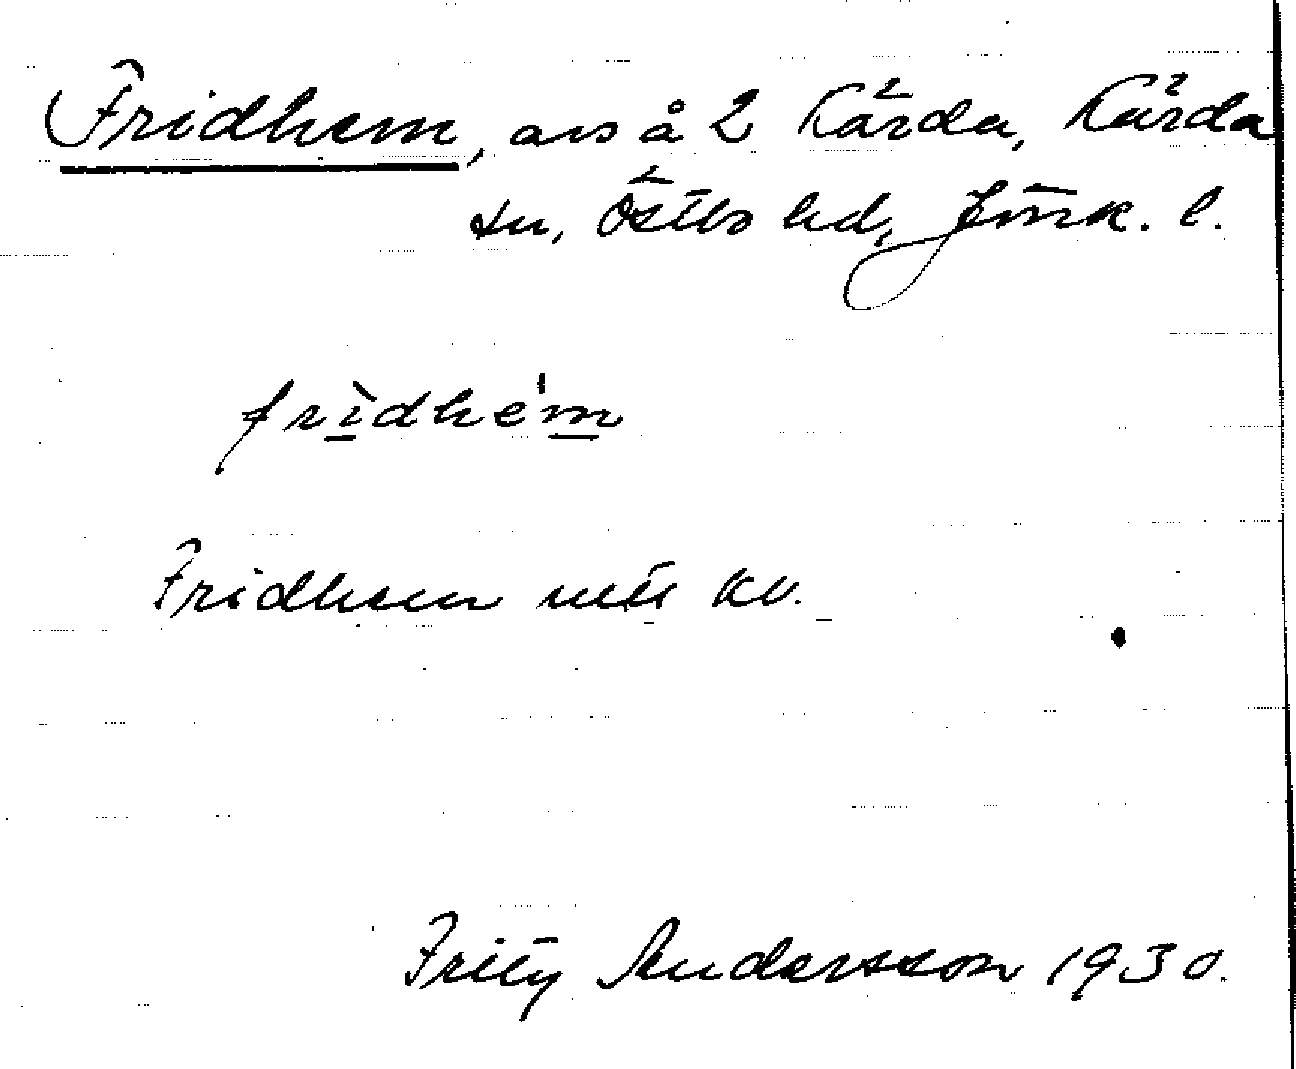 Fridhem, avs å 2 Kärda, Kärda
sn, Östbo hd, Jönk. l.
fridhem
Fridhem mtl kv.
Fritz Andersson 1930.